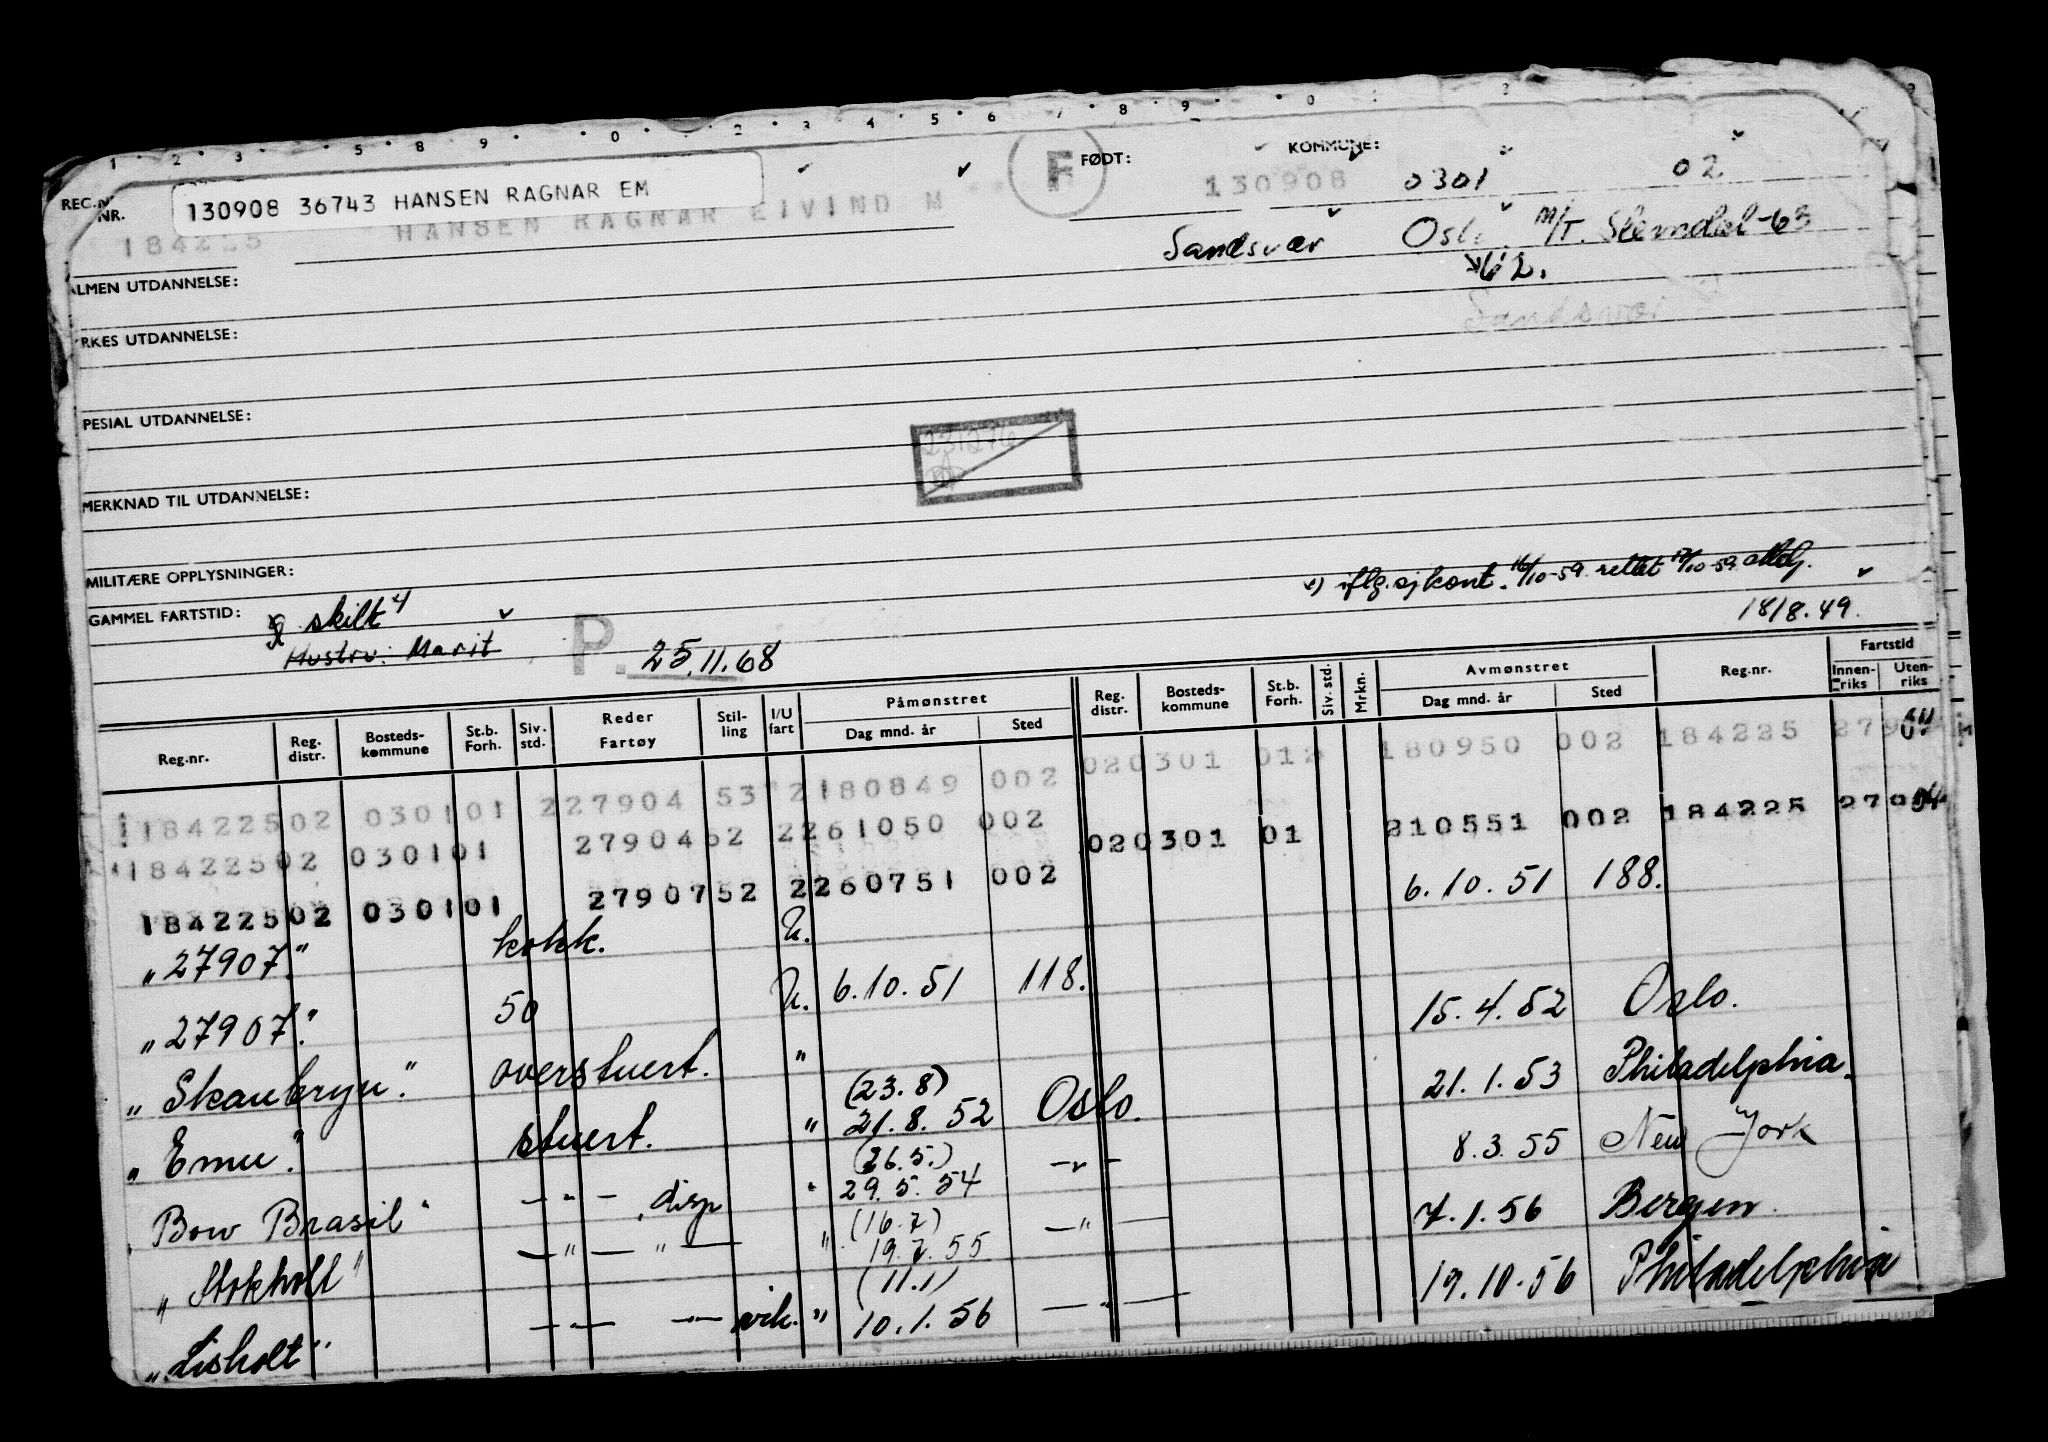 1 2 3 5 8 9 0 2 3 4 5 6 7 8 9 0
REG.N
NR.
130908 36743 HANSEN RAGNAR EM
F
FØDT:
KOMMUNE:
184225 HANSEN RAGNAR EIVIND M
130908 0301 02
Sandsvær Oslo M/T. Slemdal-63
62.
Sandsvær
LMEN UTDANNELSE:
RKES UTDANNELSE:
PESIAL UTDANNELSE:
231276
MERKNAD TIL UTDANNELSE:
MILITÆRE OPPLYSNINGER:
iflg. sjkont. 16/10-59. rettet 17/10-59.
GAMMEL FARTSTID:
g skilt
18/8.49.
Hustru: Marit
P. 25.11.68
Reg.nr. Reg. distr. Bosteds-kommune St.b. Forh. Siv. std. Reder Fartøy Stil-ling I/U fart Påmønstret Dag mnd. år Sted Reg. distr. Bosteds-kommune St.b. Forh. Siv. std. Mrkn. Avmønstret Dag mnd. år Sted Reg.nr. Fartstid Innen-riks Uten-riks
18422502 030101 227904 53 2180849 002 020301 012 180950 002 184225 279
18422502 030101 27904 62 2261050 002 020301 01 210551 002 184225 279
18422502 030101 27907 52 2260751 002 6.10.51 188.
„27907." kokk. U.
„27907." 50 U. 6.10.51 118. 15.4.52 Oslo.
„Skaubryn." overstuert. " (23.8) 21.8.52 Oslo. 21.1.53 Philadelphia.
„Emu." stuert. " (26.5.) 29.5.54 —„— 8.3.55 New York
Bow Brasil" —„— disp " (16.7) 19.7.55 —"— 4.1.56 Bergen.
„Stokholt" —"— "— " (11.1) 10.1.56 —„— 19.10.56 Philadelphia
„Lisholt" —„— — vik. "